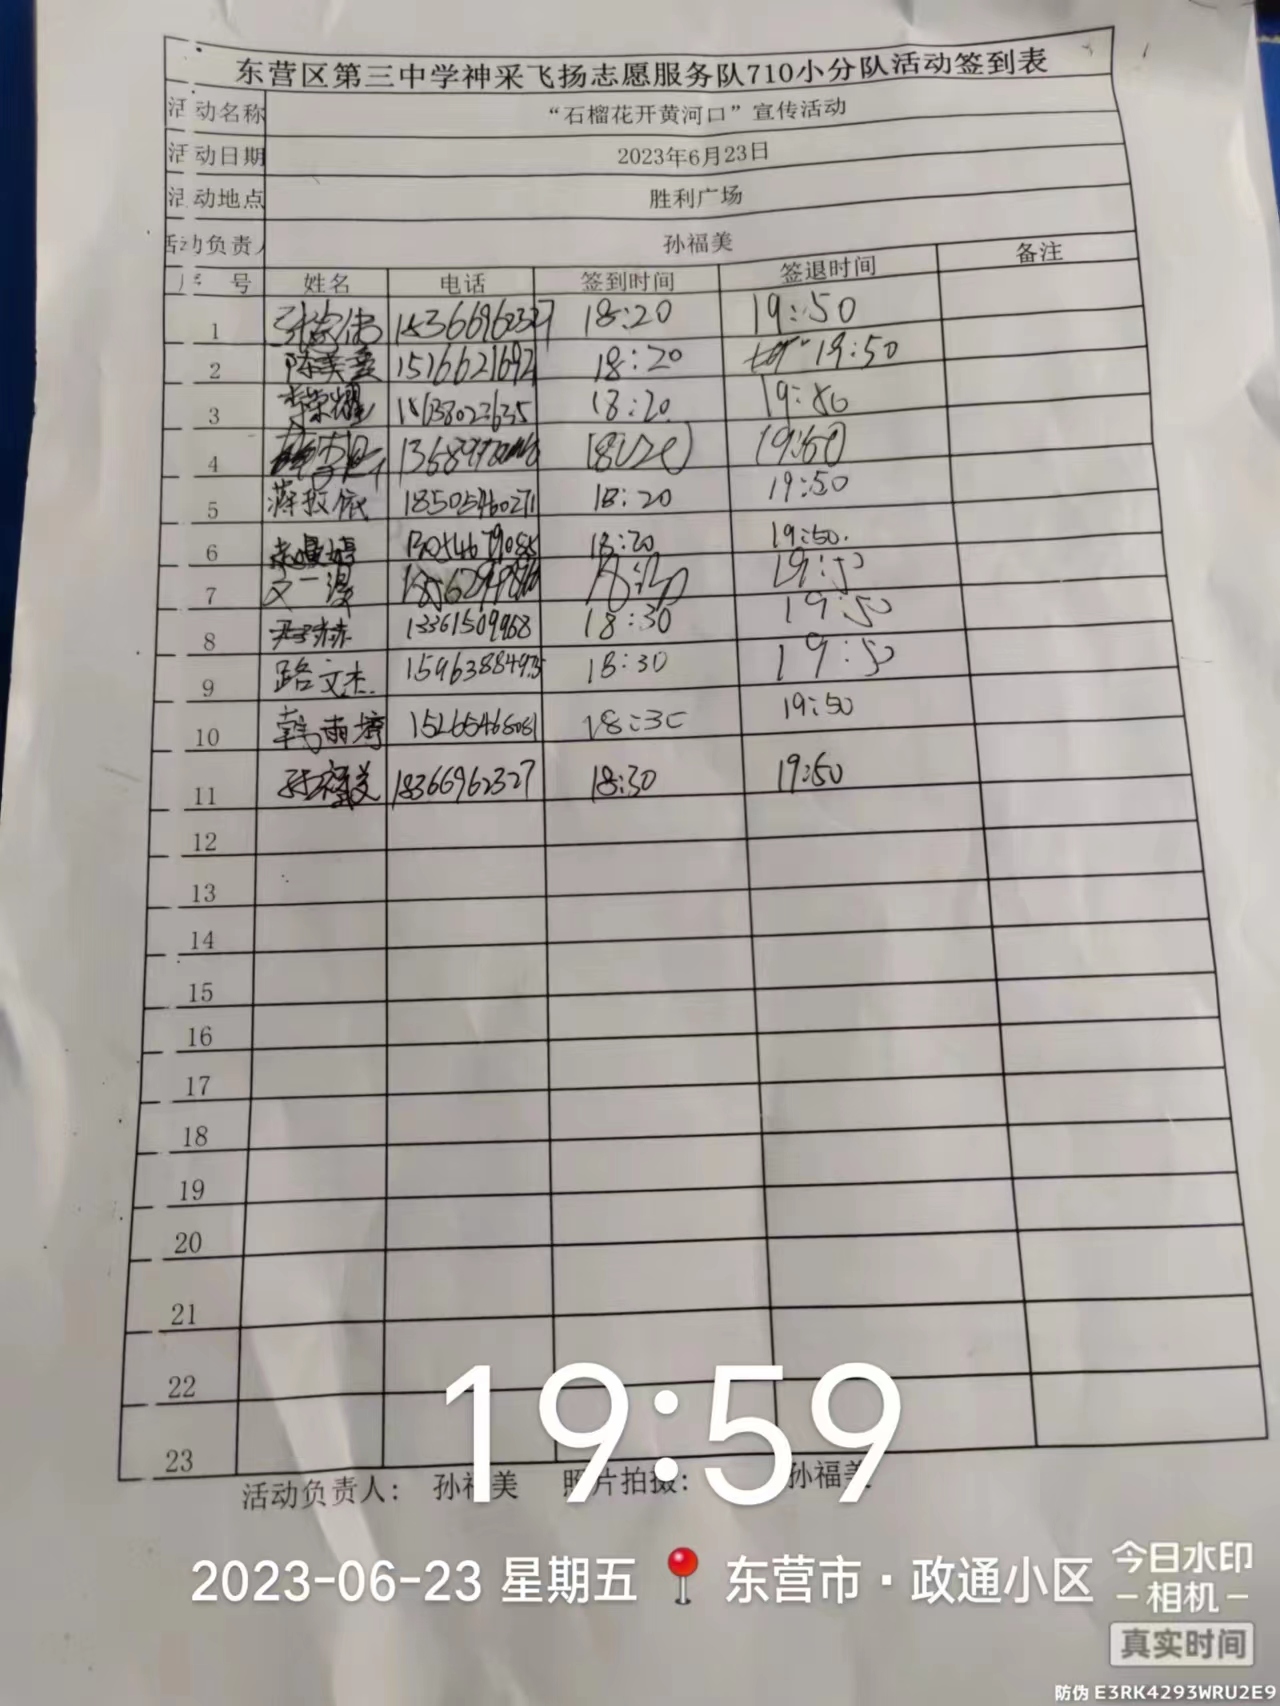 东营区第三中学神采飞扬志愿服务队710小分队活动签到表
活动名称 “石榴花开黄河口”宣传活动
活动日期 2023年6月23日
活动地点 胜利广场
活动负责人 孙福美
序 号 姓名 电话 签到时间 签退时间 备注
1 18366962327 18:20 19:50
2 陈美 15166216 18:20 19:50
3 李荣耀 18:20
4 18:20
5 蒋 18505460271 18:20 19:50
6 18:20 19:50.
7 文一漫 19:50
8 13361509968 18:30 19:50
9 路文杰 1596388497 18:30 19:50
10 韩雨 15265468081 18:30 19:50
11 孙福美 18366962327 18:30 19:50
12
13
14
15
16
17
18
19
20
21
22
23
活动负责人： 孙福美 照片拍摄： 孙福美
19:59
2023-06-23 星期五 东营市·政通小区
今日水印
-相机-
真实时间
防伪 E3RK4293WRU2E9